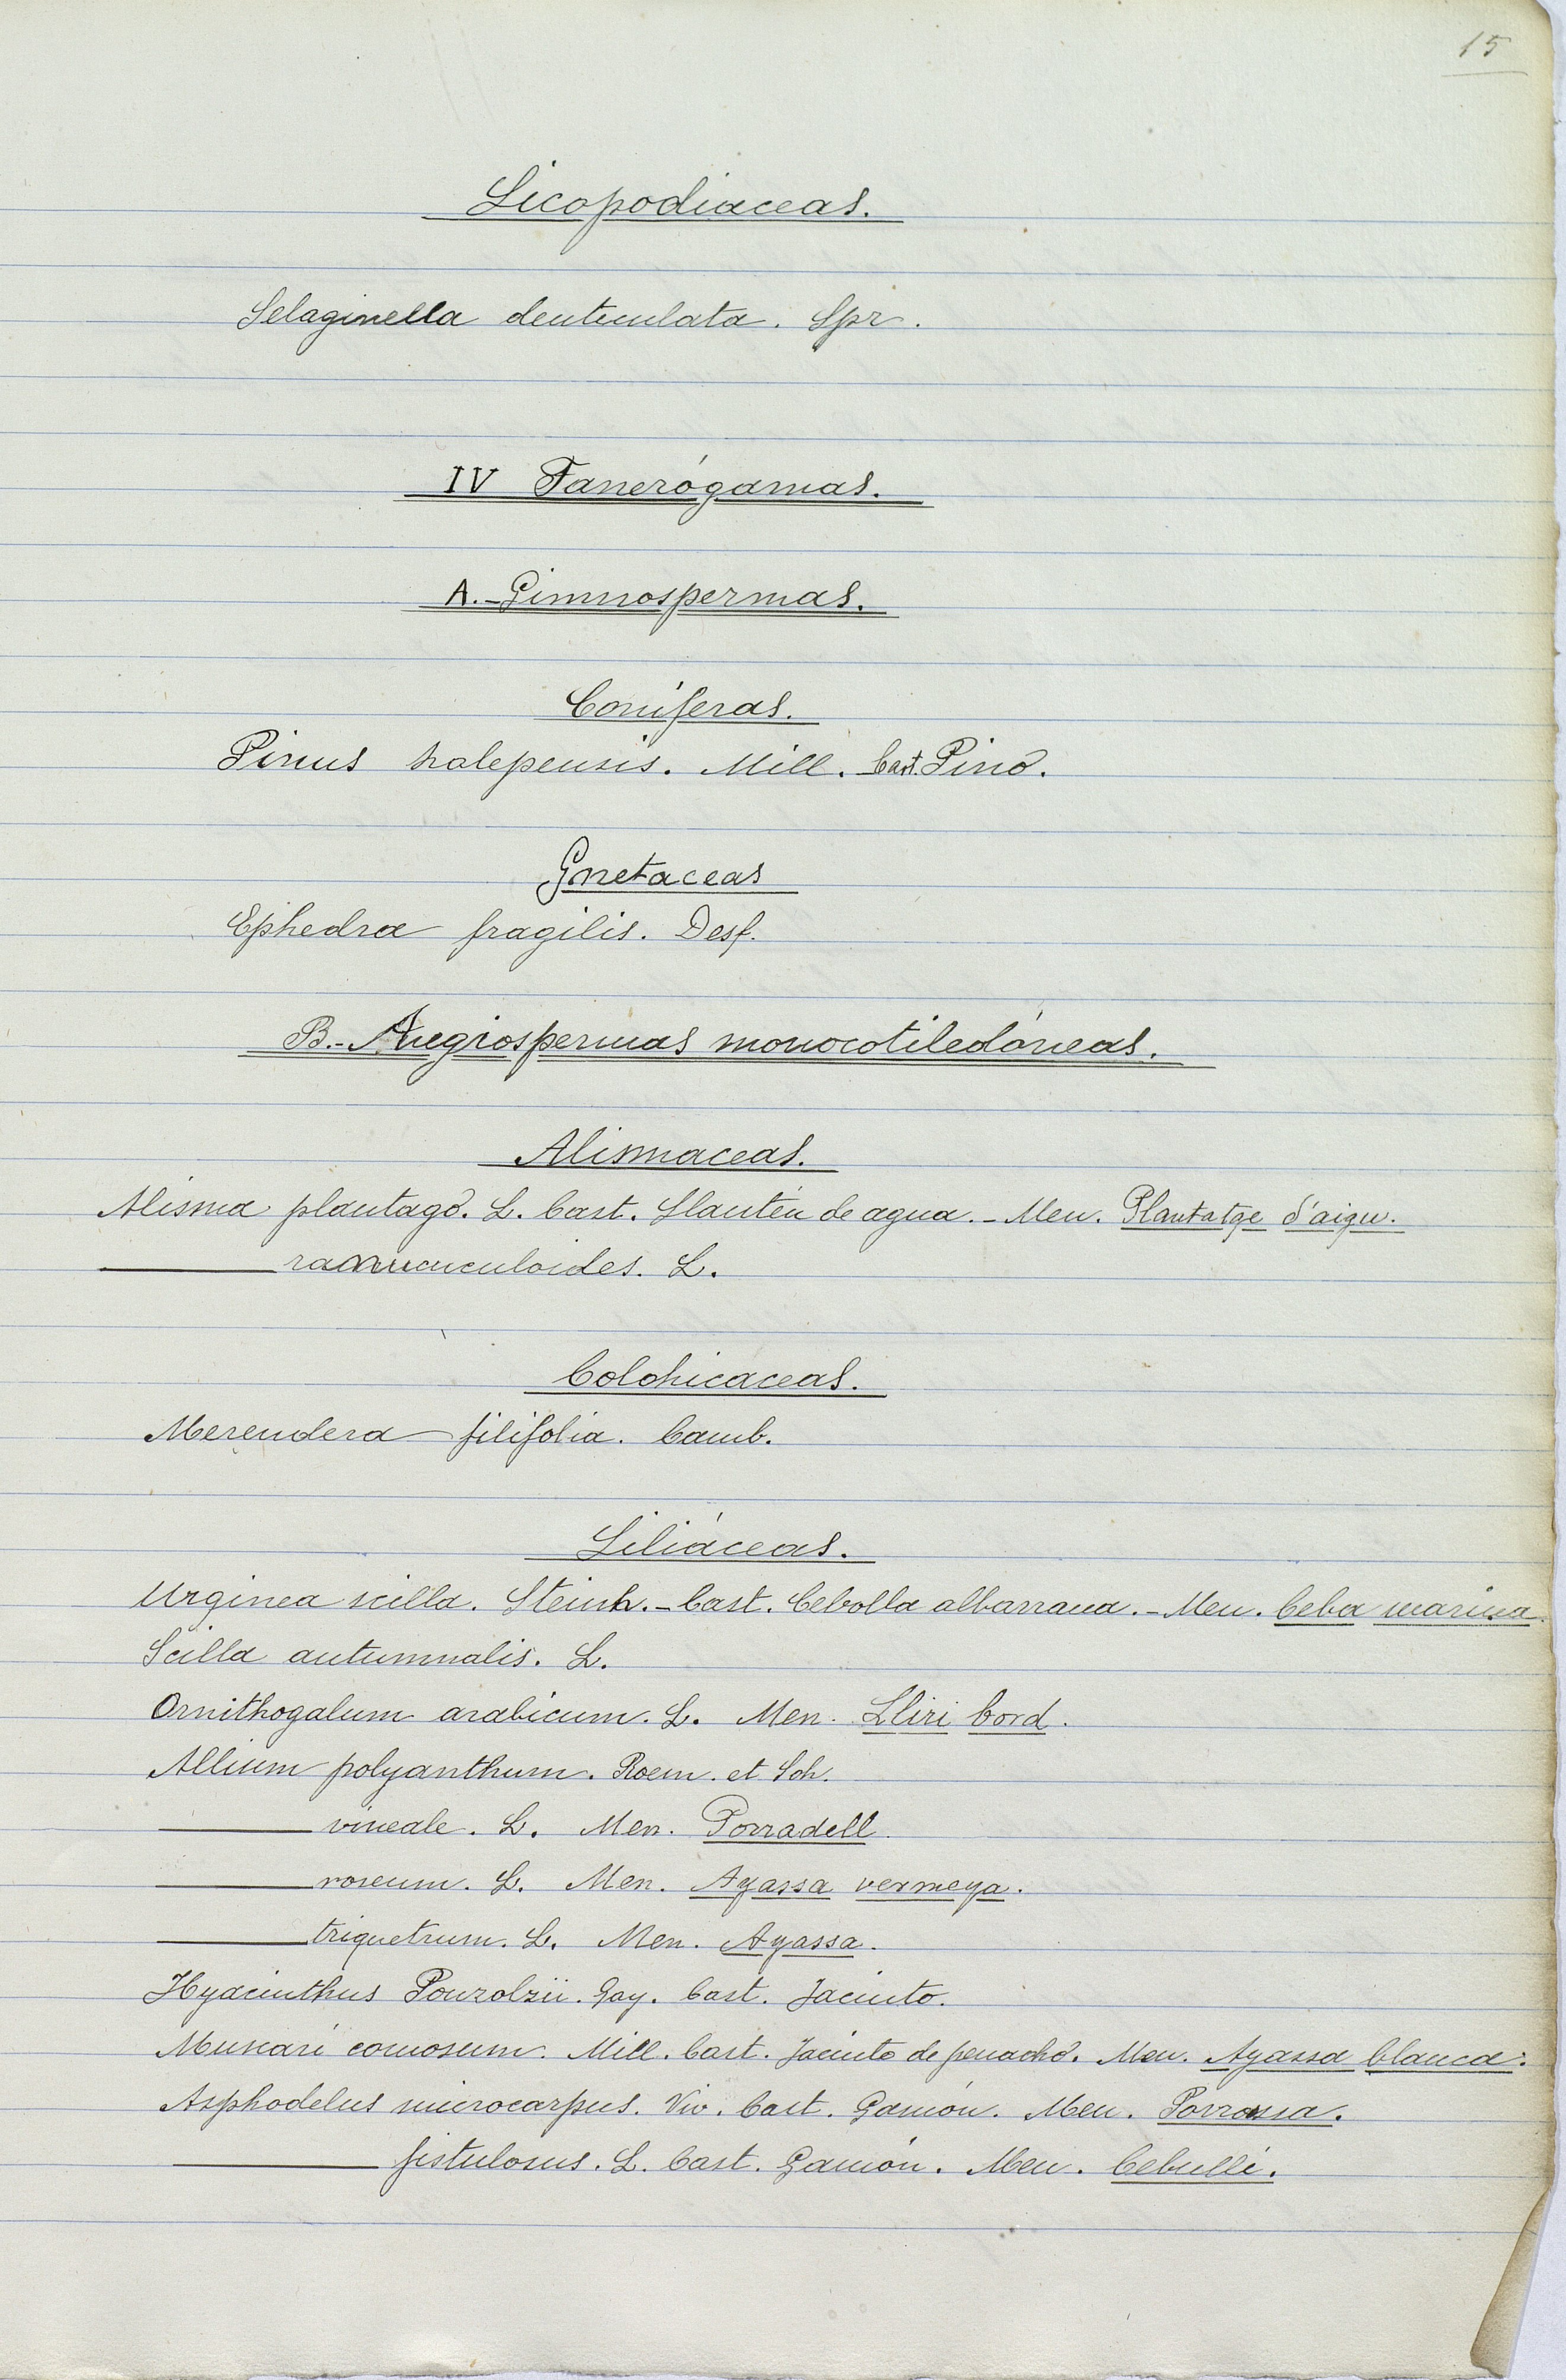 15
Licopodiaceas.
Selaginella denticulata. Spr.
IV Fanerógamas.
A.- Gimnospermas.
Coníferas.
Pinus halepensis. Mill. Cast. Pino.
Gnetaceas
Ephedra fragilis. Desf.
B.- Angiospermas monocotiledóneas.
Alismaceas.
Alisma plantago. L. Cast. Llantén de agua. - Men. Plantatge d'aigu.
——— ranucuculoides. L.
Colchicaceas.
Merendera filifolia. Camb.
Liliáceas.
Urginea scilla. Steinh. - Cast. Cebolla albarrana. - Men. Ceba marina.
Scilla autumnalis. L.
Ornithogalum arabicum. L. Men. Lliri bord.
Allium polyanthum. Roem. et Sch.
——— vineale. L. Men. Porradell.
——— roseum. L. Men. Ayassa vermeya.
——— triquetrum. L. Men. Ayassa.
Hyacinthus Pouzolzii. Gay. Cast. Jacinto.
Muscari comosum. Mill. Cast. Jacinto de penacho. Men. Ayassa blanca.
Asphodelus microcarpus. Viv. Cast. Gamón. Men. Porrassa.
——— fistulosus. L. Cast. Gamón. Men. Cebullí.